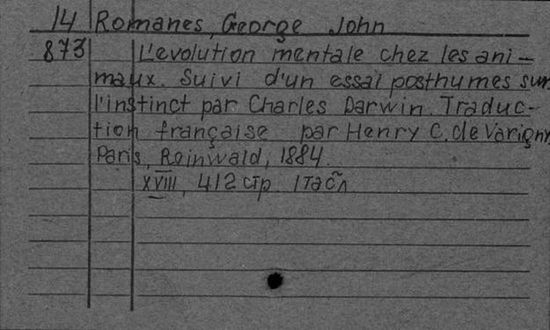 14 Romanes, George John
873 L'evolution mentale chez les ani-
maux. Suivi d'un essai posthumes sur
l'instinct par Charles Darwin. Traduc-
tion française par Henry C. de Varigny
Paris, Reinwald, 1884.
XVIII, 412 стр. 1 табл